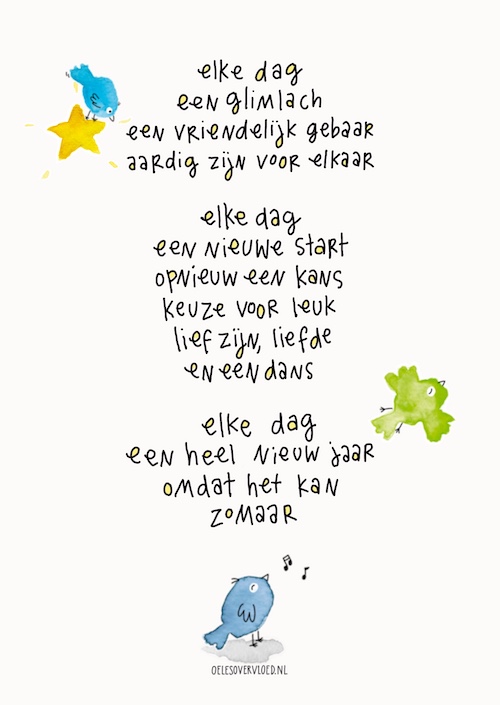 elke dag
een glimlach
een vriendelijk gebaar
aardig zijn voor elkaar
elke dag
een nieuwe start
opnieuw een kans
keuze voor leuk
lief zijn, liefde
en een dans
elke dag
een heel nieuw jaar
omdat het kan
zomaar
OELESOVERVLOED.NL